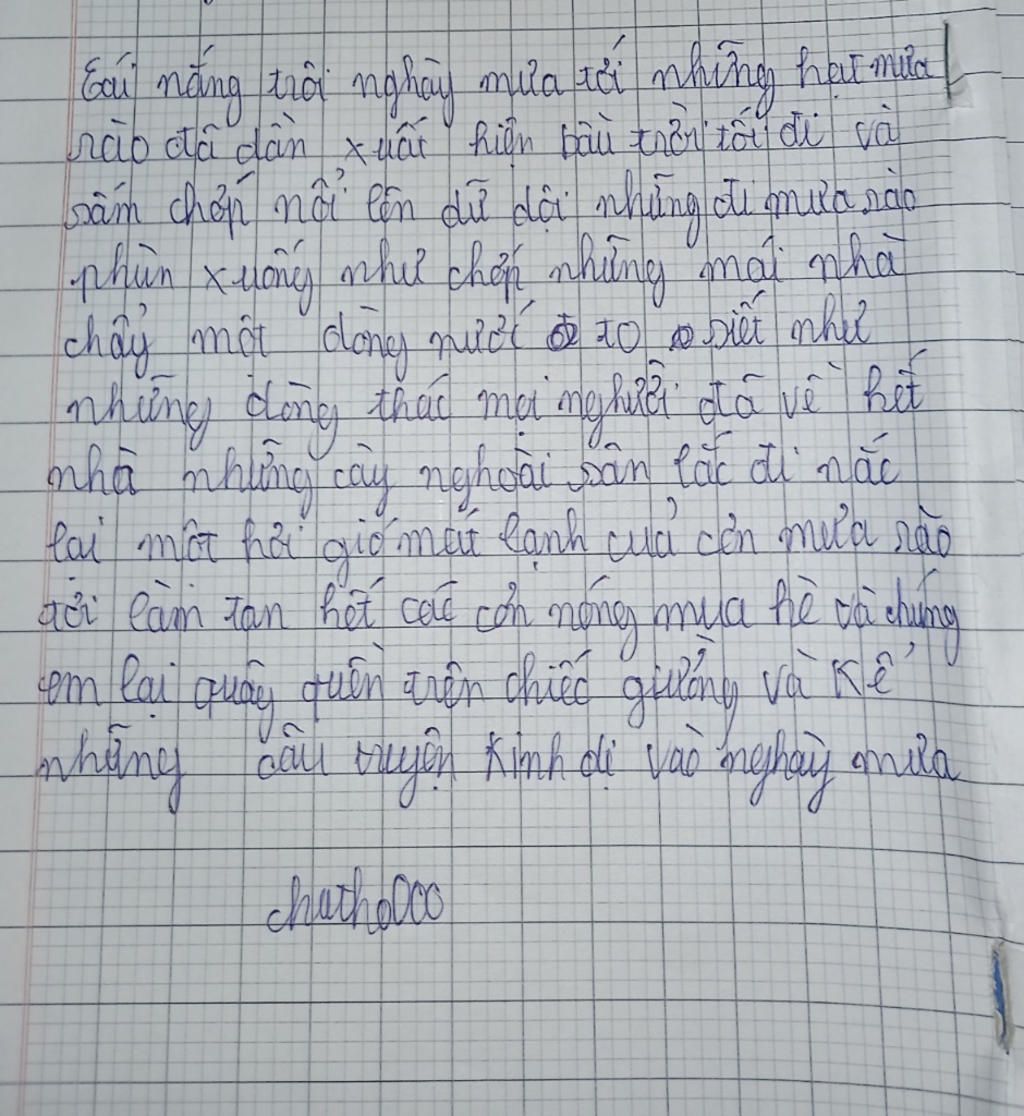 Cái nắng trôi nghày mưa tới những hạt mưa
rào đã dần xuất hiện bầu trời tối đi và
sấm chớp nổi lên dữ dội những đi mưa rào
phùn xuống như chớp những mái nhà
chảy một dòng nước to siết như
những dòng thác mọi nghười đã về hết
nhà những cây nghoài sân lắc đi nắc
lại một hơi gió mát lạnh của cơn mưa rào
tới làm tan hết các cơn nóng mùa hè và chúng
em lại quây quần trên chiếc giường và kể
những câu truyện kinh dị vào nghày mưa